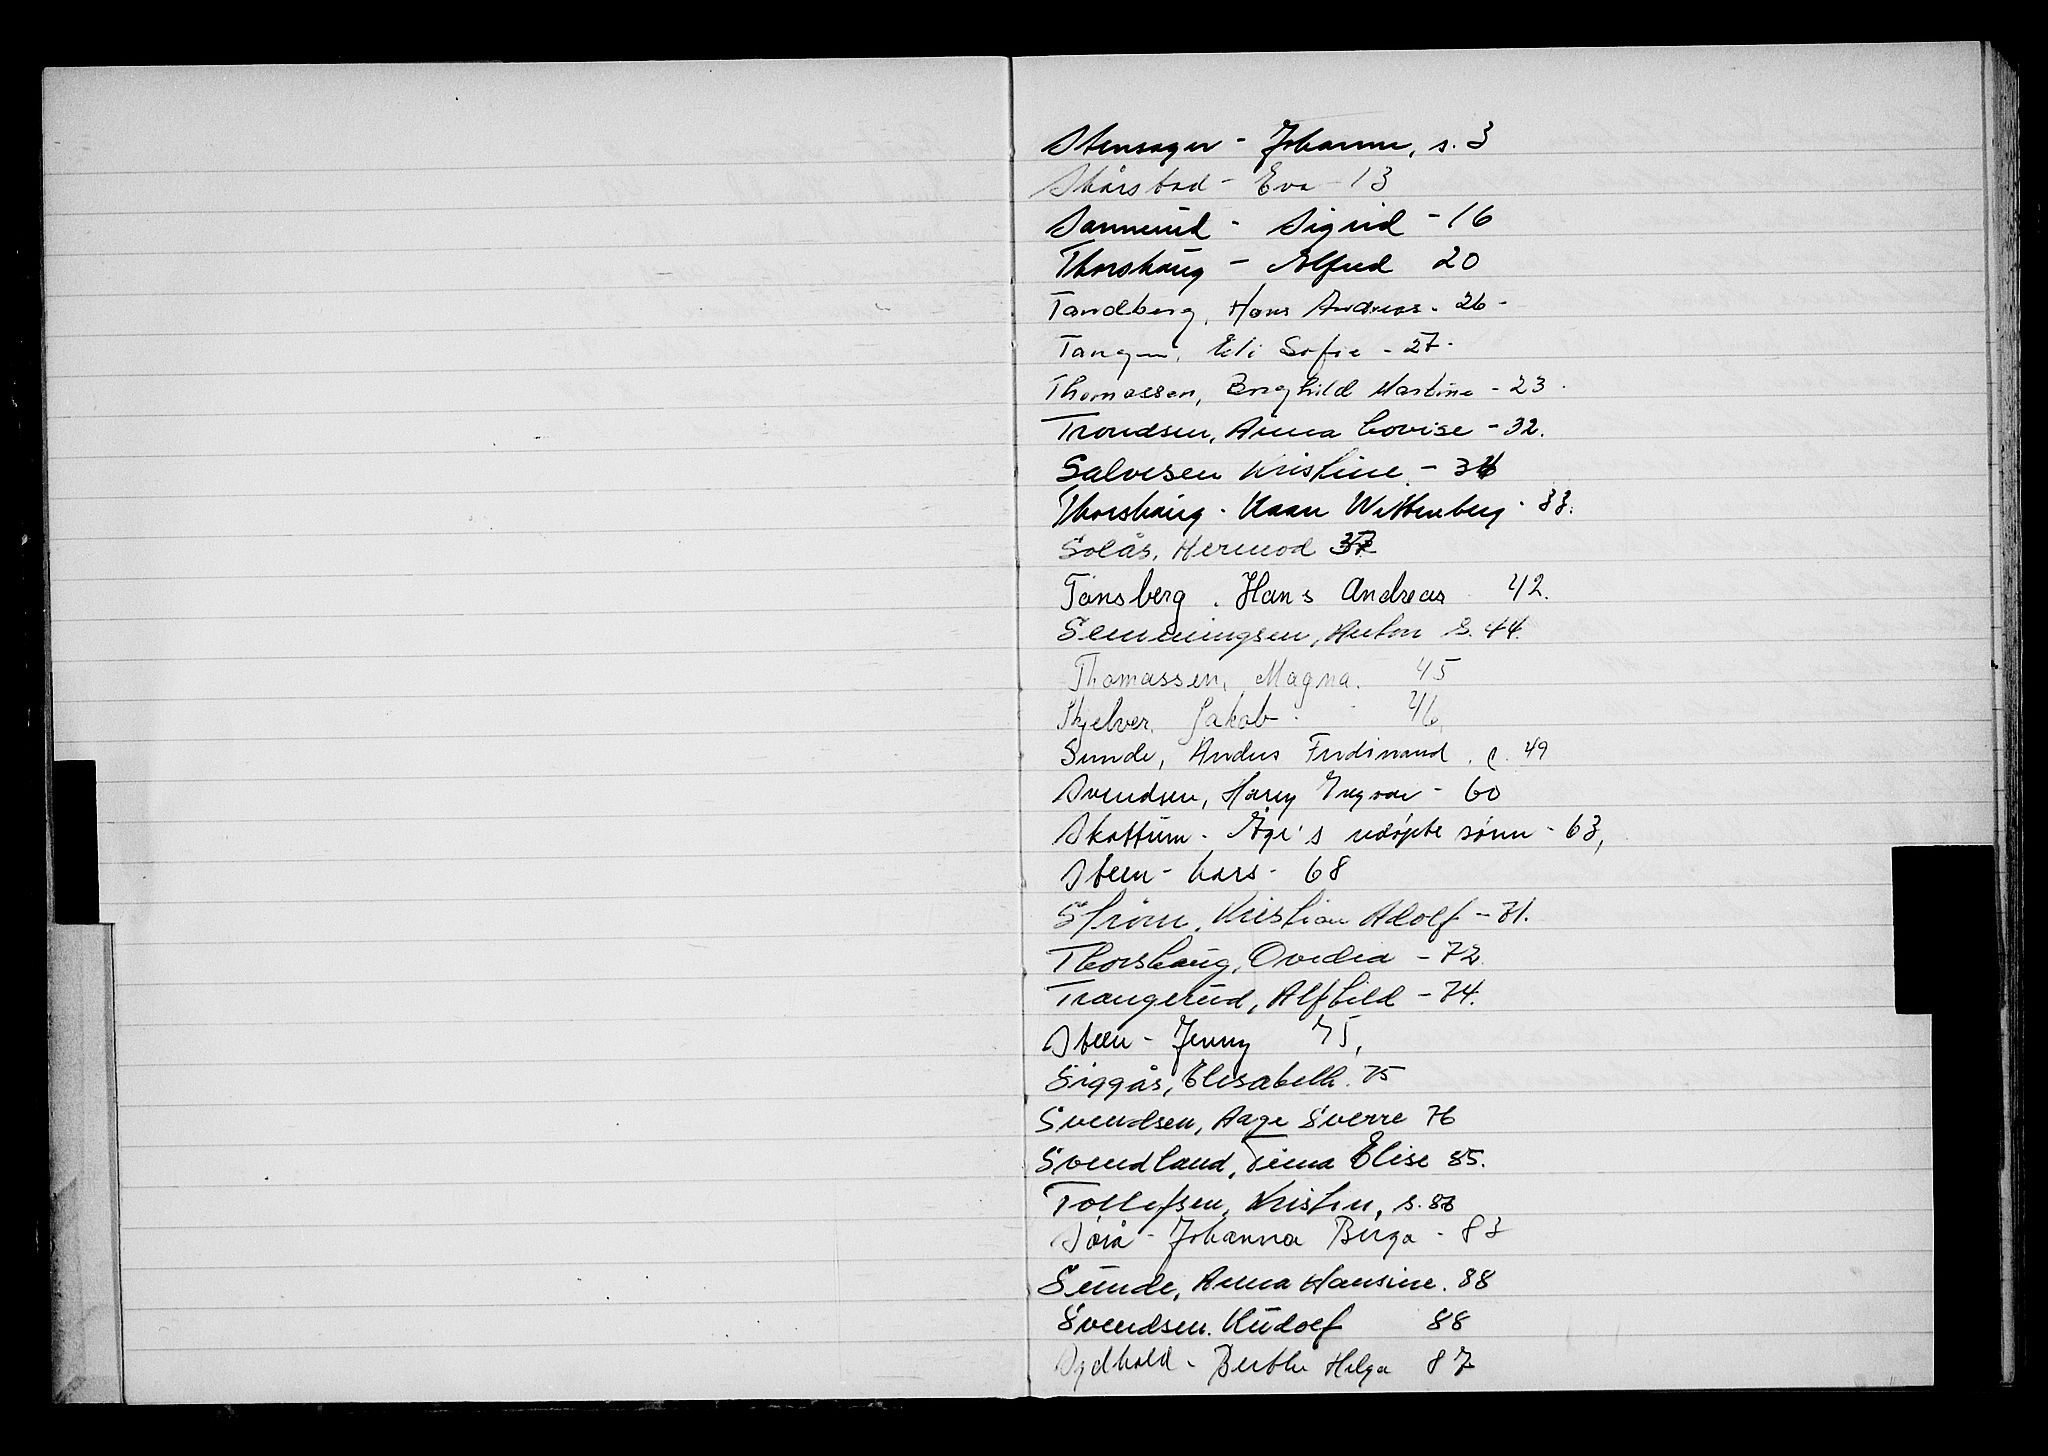 Stensager - Johanne, s. 3
Skårstad - Eva - 13
Sannerud - Sigrid - 16
Thorshaug - Alfred 20
Tandberg, Hans Andreas - 26 -
Tangen, Eli Sofie - 27 -
Thomassen, Borghild Martine - 23 -
Trondsen, Anna Lovise - 32.
Salvesen Kristine - 34
Thorshaug - Karen Wittenberg - 33.
Solås, Hermod 37
Tønsberg, Hans Andreas 42.
Semmingsen, Anton s. 44.
Thomassen, Magna. 45
Skjelver, Jakob - 46
Sunde, Anders Ferdinand. p. 49
Svendsen, Harry Ingvar - 60
Skattum - Åge's udøpte sønn - 63,
Steen - Lars - 68
Strøm, Kristian Adolf - 71.
Thorshaug, Ovedia - 72
Trangerud, Alfhild - 74.
Steen - Jenny 75,
Siggås, Elisabeth. 75
Svendsen, Aage Sverre 76
Svendland, Tina Elise 85.
Tollefsen, Kristin, s. 86
Johanna Birga - 83
Sunde, Anna Hansine. 88
Svendsen. Rudolf 88
Sydhold - Berthe Helga 87